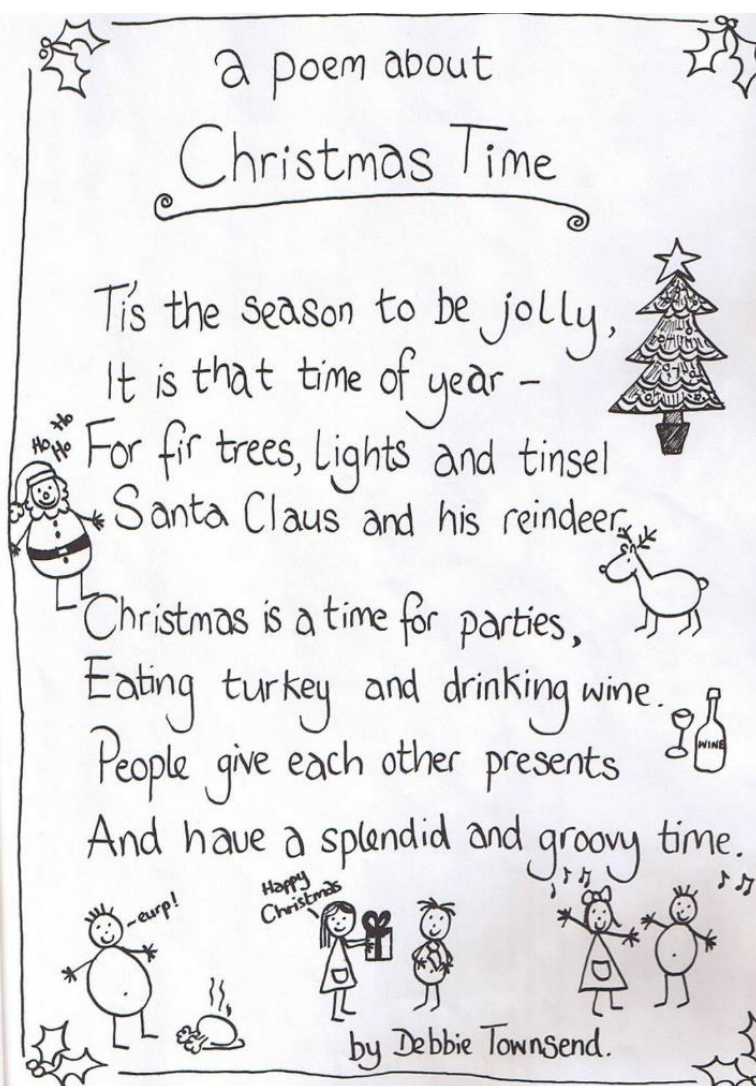 a poem about
Christmas Time
Tis the season to be jolly,
It is that time of year -
For fir trees, lights and tinsel
Ho Ho
Ho
Santa Claus and his reindeer
Christmas is a time for parties,
Eating turkey and drinking wine.
WINE
People give each other presents
And have a splendid and groovy time.
- eurp!
Happy
Christmas
by Debbie Townsend.